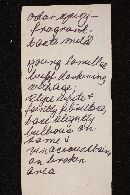 odor spicy -
fragrant.
taste mild

young lamellae
buff darkening
with age;
stipe white &
faintly fibrillose,
base slightly
bulbous on
some &
vinaceous brown
on broken
area